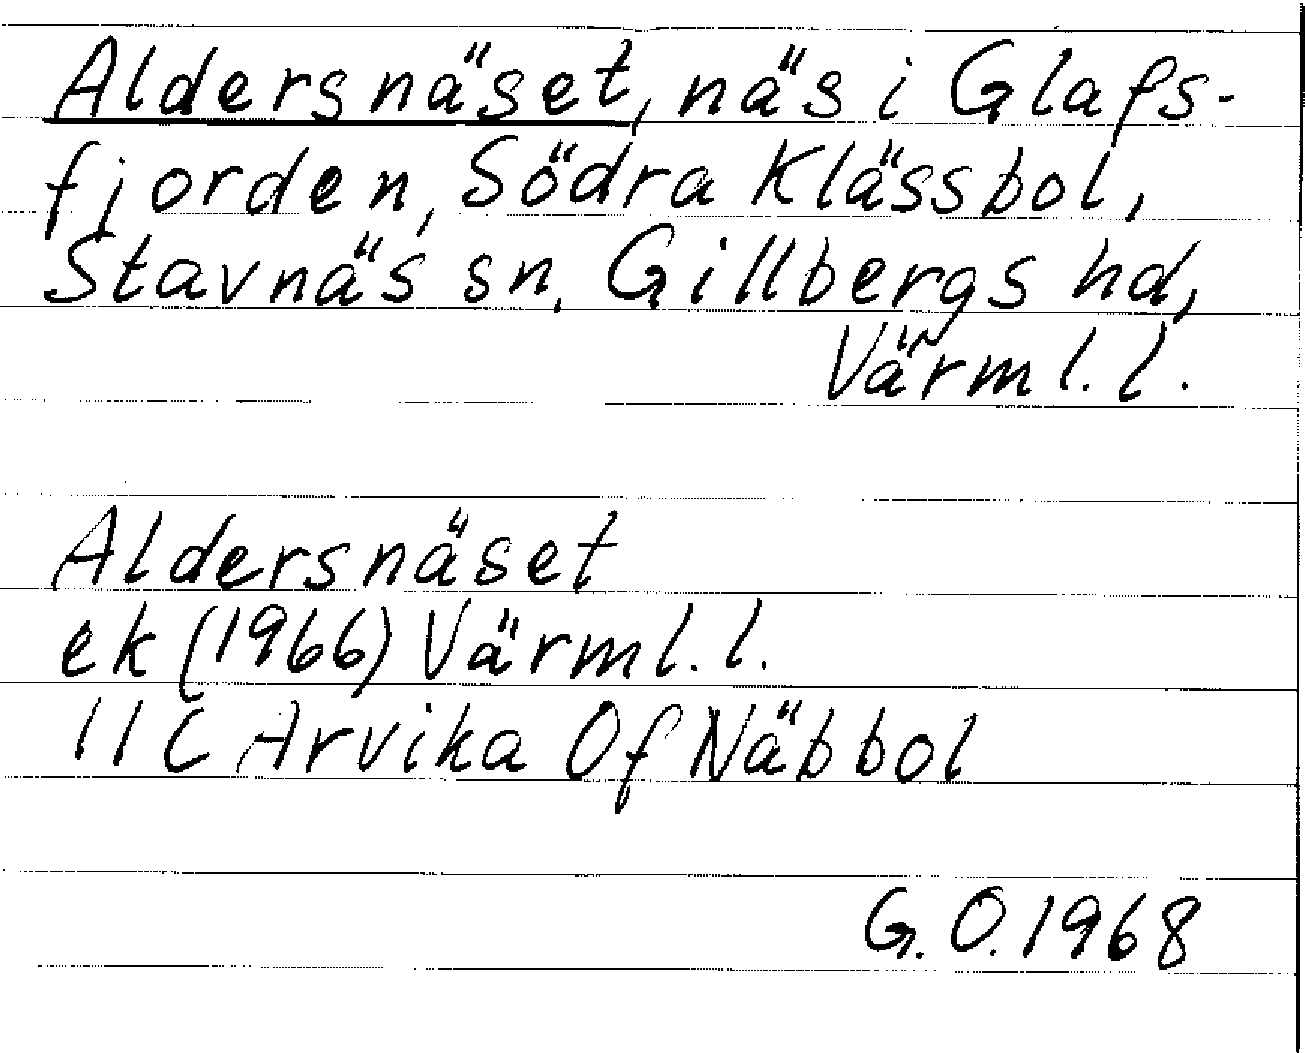 Aldersnäset, näs i Glafs-
fjorden, Södra Klässbol,
Stavnäs sn, Gillbergs hd,
Värml. l.
Aldersnäset
ek (1966) Värml. l.
11C Arvika Of Näbbol
G. O. 1968